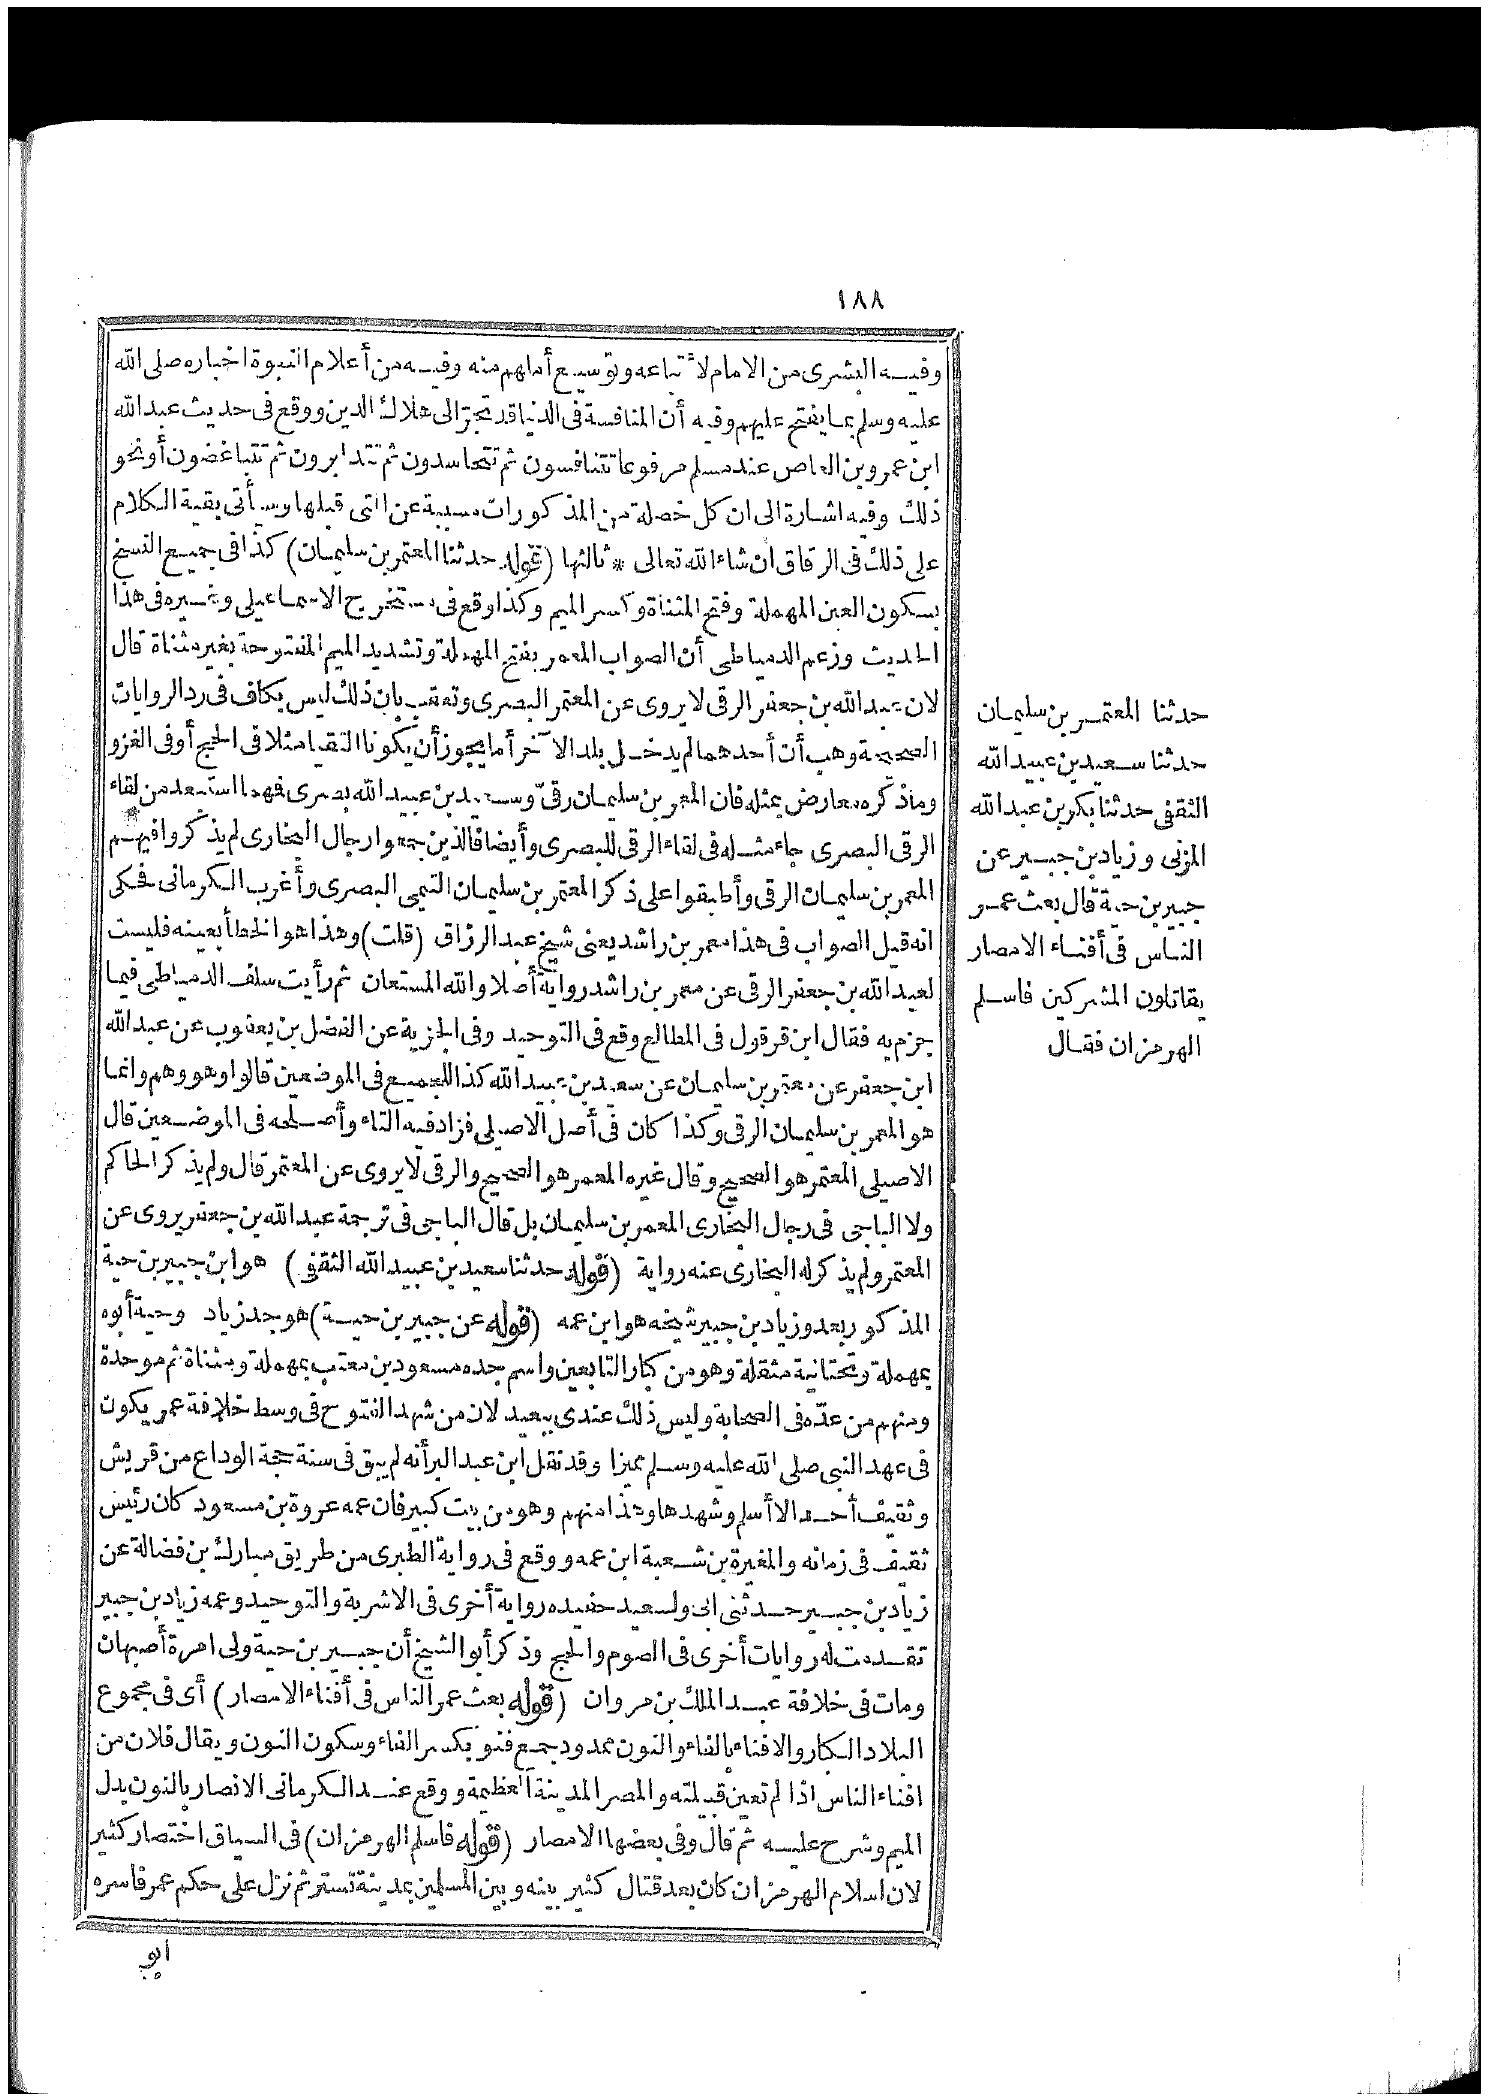 ١٨٨
وفيه البشرى من الامام لأتباعه وتوسيع أملهم منه وفيه من أعلام النبوة اخباره صلى الله
عليه وسلم بما يفتح عليهم وفيه أن المنافسة فى الدنيا قد تجر الى هلاك الدين ووقع فى حديث عبد الله
ابن عمرو بن العاص عند مسلم مرفوعا تتنافسون ثم تتحاسدون ثم تتدابرون ثم تتباغضون أو نحو
ذلك وفيه اشارة الى ان كل خصلة من المذكورات مسببة عن التى قبلها وسيأتى بقية الكلام
على ذلك فى الرقاق ان شاء الله تعالى * ثالثها (قوله حدثنا المعتمر بن سليمان) كذا فى جميع النسخ
بسكون العين المهملة وفتح المثناة وكسر الميم وكذا وقع فى مستخرج الاسماعيلى وغيره فى هذا
الحديث وزعم الدمياطى أن الصواب المعمر بفتح المهملة وتشديد الميم المفتوحة بغير مثناة قال
لان عبد الله بن جعفر الرقى لا يروى عن المعتمر البصرى وتعقب بان ذلك ليس بكاف فى رد الروايات
الصحيحة وهب أن أحدهما لم يدخل بلد الآخر أما يجوز أن يكونا التقيا مثلا فى الحج أو فى الغزو
وماذكره معارض بمثله فان المعمر بن سليمان رقى وسعيد بن عبيد الله بصرى فهما استبعد من لقاء
الرقى البصرى جاء مثله فى لقاء الرقى للبصرى وأيضا فالذين جمعوا رجال البخارى لم يذكروا فيهم
المعمر بن سليمان الرقى وأطبقوا على ذكر المعتمر بن سليمان التيمى البصرى وأغرب الكرمانى فحكى
انه قيل الصواب فى هذا معمر بن راشد يعنى شيخ عبد الرزاق (قلت) وهذا هو الخطأ بعينه فليست
لعبد الله بن جعفر الرقى عن معمر بن راشد رواية أصلا والله المستعان ثم رأيت سلف الدمياطى فيما
جزم به فقال ابن قرقول فى المطالع وقع فى التوحيد وفى الجزية عن الفضل بن يعقوب عن عبد الله
ابن جعفر عن معتمر بن سليمان عن سعيد بن عبيد الله كذا للجميع فى الموضعين قالوا وهو وهم وانما
هو المعمر بن سليمان الرقى وكذا كان فى أصل الاصيلى فزاد فيه التاء وأصلحه فى الموضعين قال
الاصيلى المعتمر هو الصحيح وقال غيره المعمر هو الصحيح والرقى لا يروى عن المعتمر قال ولم يذكر الحاكم
ولا الباجى فى رجال البخارى المعمر بن سليمان بل قال الباجى فى ترجمة عبد الله بن جعفر يروى عن
المعتمر ولم يذكر له البخارى عنه رواية (قوله حدثنا سعيد بن عبيد الله الثقفى) هو ابن جبير بن حية
المذكور بعد وزياد بن جبير شيخه هو ابن عمه (قوله عن جبير بن حية) هو جد زياد وحية أبوه
بمهملة وتحتانية مثقلة وهو من كبار التابعين واسم جده مسعود بن معتب بمهملة ومثناة ثم موحدة
ومنهم من عده فى الصحابة وليس ذلك عندى ببعيد لان من شهد الفتوح فى وسط خلافة عمر يكون
فى عهد النبى صلى الله عليه وسلم مميزا وقد نقل ابن عبد البر أنه لم يبق فى سنة حجة الوداع من قريش
وثقيف أحد الا أسلم وشهدها وهذا منهم وهو من بيت كبير فان عمه عروة بن مسعود كان رئيس
ثقيف فى زمانه والمغيرة بن شعبة ابن عمه ووقع فى رواية الطبرى من طريق مبارك بن فضالة عن
زياد بن جبير حدثنى أبى ولسعيد حفيده رواية أخرى فى الاشربة والتوحيد وعمه زياد بن جبير
تقدمت له روايات أخرى فى الصوم والحج وذكر أبو الشيخ أن جبير بن حية ولى امرة أصبهان
ومات فى خلافة عبد الملك بن مروان (قوله بعث عمر الناس فى أفناء الامصار) أى فى مجموع
البلاد الكبار والافناء بالفاء والنون ممدود جمع فنو بكسر الفاء وسكون النون ويقال فلان من
افناء الناس اذا لم تعين قبيلته والمصر المدينة العظيمة ووقع عند الكرمانى الانصار بالنون بدل
الميم وشرح عليه ثم قال وفى بعضها الامصار (قوله فاسلم الهرمزان) فى السياق اختصار كثير
لان اسلام الهرمزان كان بعد قتال كثير بينه وبين المسلمين بمدينة تستر ثم نزل على حكم عمر فاسره
أبو
حدثنا المعتمر بن سليمان
حدثنا سعيد بن عبيد الله
الثقفى حدثنا بكر بن عبد الله
المزنى وزياد بن جبير عن
جبير بن حية قال بعث عمر
الناس فى أفناء الامصار
يقاتلون المشركين فاسلم
الهرمزان فقال